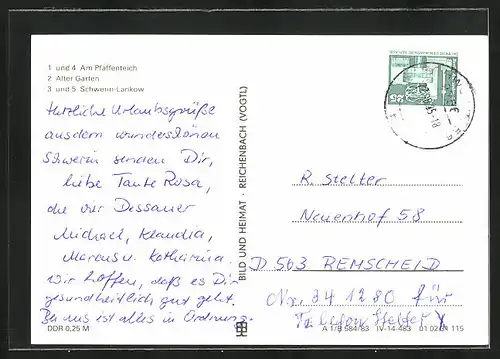 1 und 4 Am Pfaffenteich
2 Alter Garten
3 und 5 Schwerin-Lankow
Herzliche Urlaubsgrüße
aus dem wunderschönen
Schwerin senden Dir,
liebe Tante Rosa,
die vier Dessauer
Michael, Klaudia,
Marcus u. Katharina.
Wir hoffen, daß es Dir
gesundheitlich gut geht.
Bei uns ist alles in Ordnung.
DDR 0,25 M
BILD UND HEIMAT · REICHENBACH (VOGTL)
R. Stelter
Neuenhof 58
D 563 REMSCHEID
Nr. 341280 für
Telefon Stelter
A 1/B 584/83 IV-14-483 01 02 115